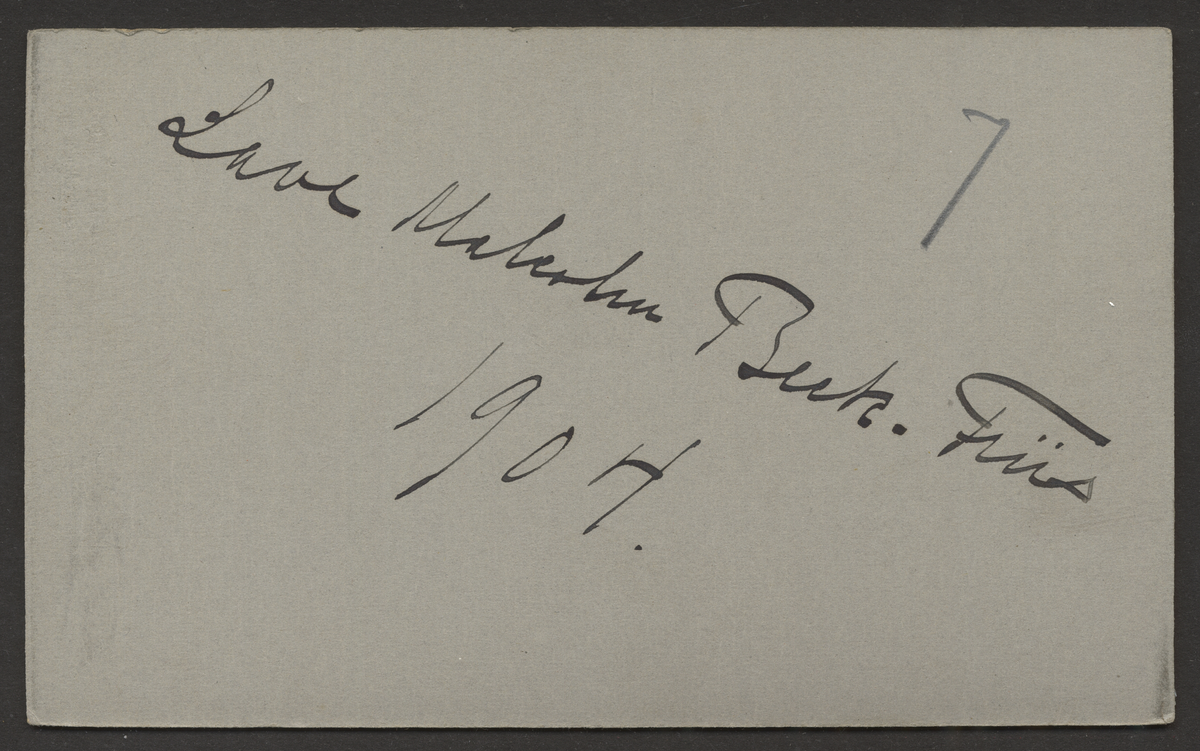 7
Lave Malcolm Beck. Friis
1904.